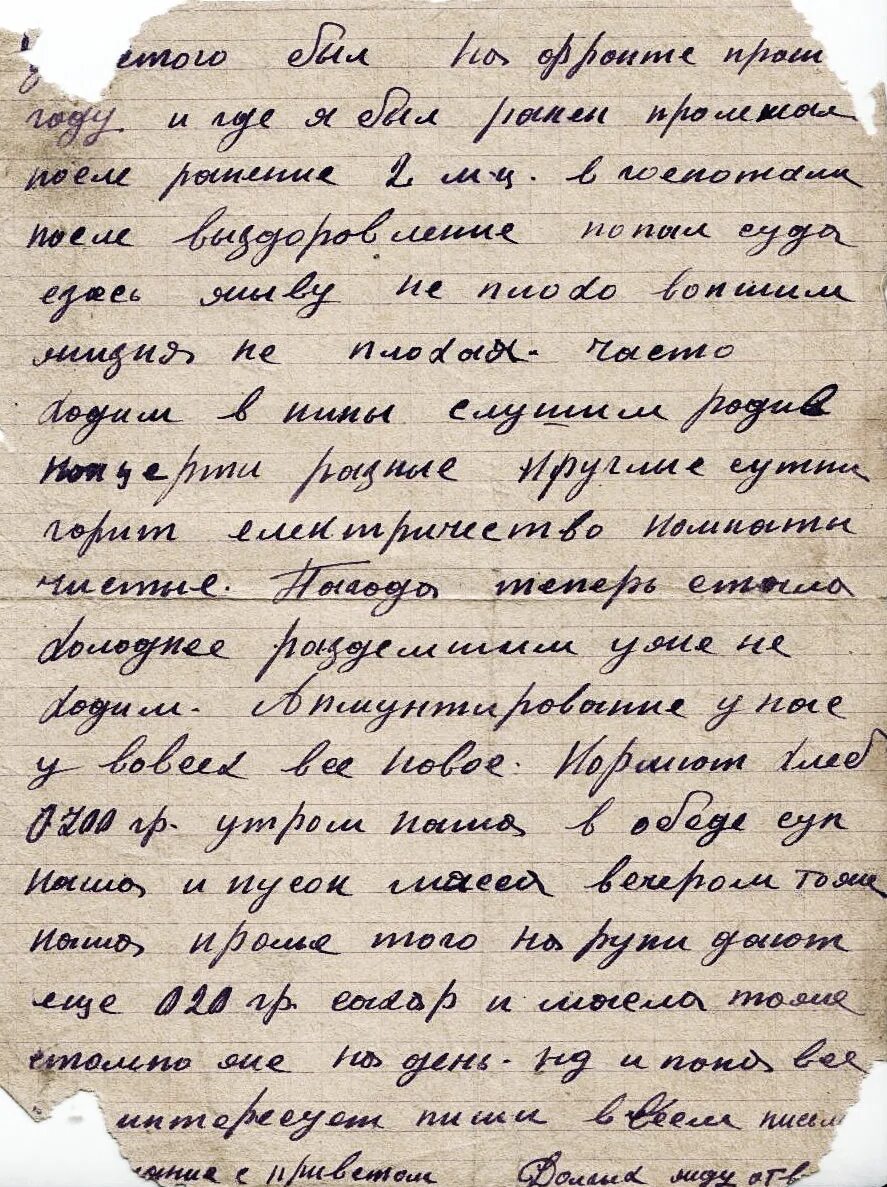 этого был на фронте прош
году и где я был ранен пролежал
после ранение 2 м-ц. в госпотали
после выздоровление попал суда
сдесь живу не плохо вопшим
жизня не плохая. часто
ходим в кины слушим родив
концерти разные круглие сутки
горит електричество комнати
чистые. Пагода теперь стала
холоднее разделшим уже не
ходим. Апмунтирование у нас
у вовсех все новое. Кормют хлеб
0700 гр. утром каша в обеде суп
каша и кусок мяеса вечером тоже
каша кромье того на руки дают
еще 020 гр. сахар и масла тоже
столко же на день. нд и пока все
интересует пиши в всем письм
ание с приветом Долгих жду отв